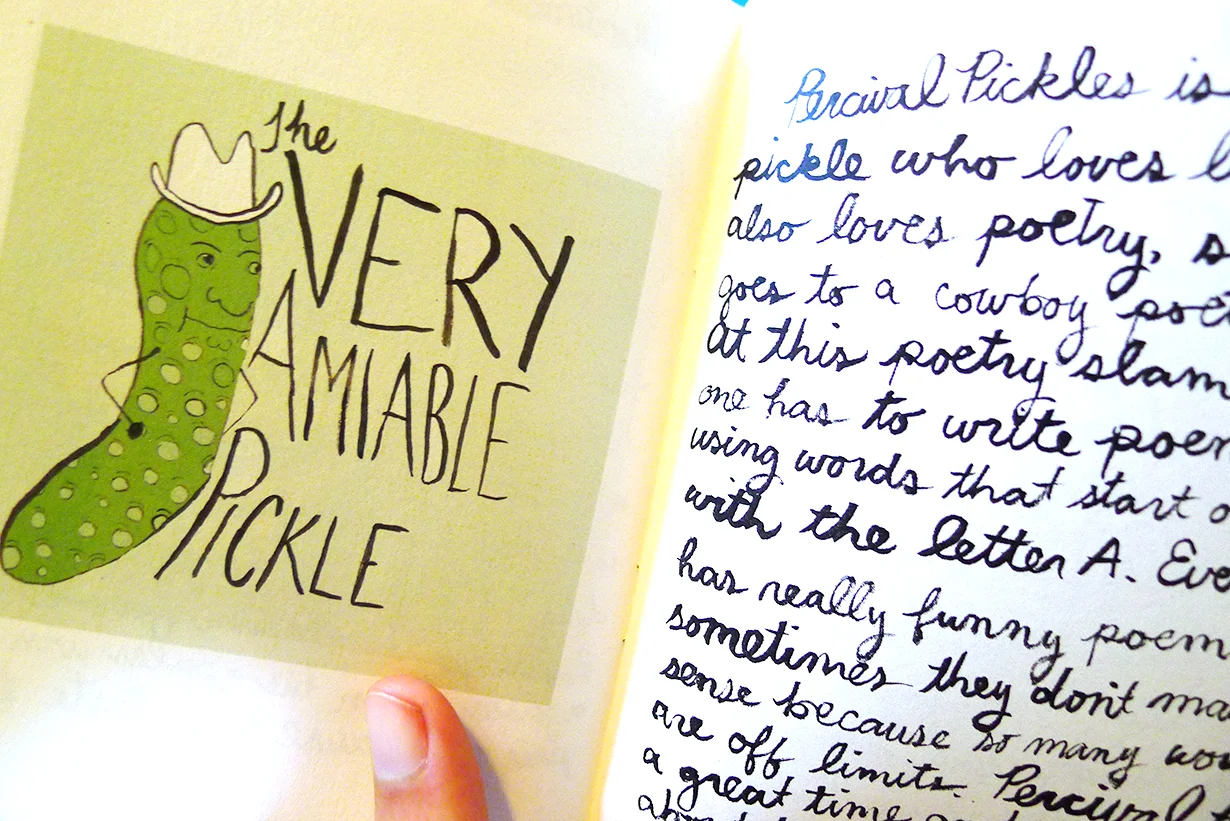 The
VERY
AMIABLE
PICKLE
Percival Pickles is
pickle who loves
also loves poetry,
goes to a cowboy
At this poetry slam
one has to write
using words that start
with the letter A.
has really funny
sometimes they don't
sense because so many
are off limits. Percival
a great time